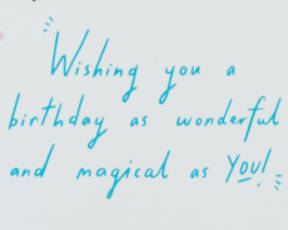 Wishing you a
birthday as wonderful
and magical as YOU!